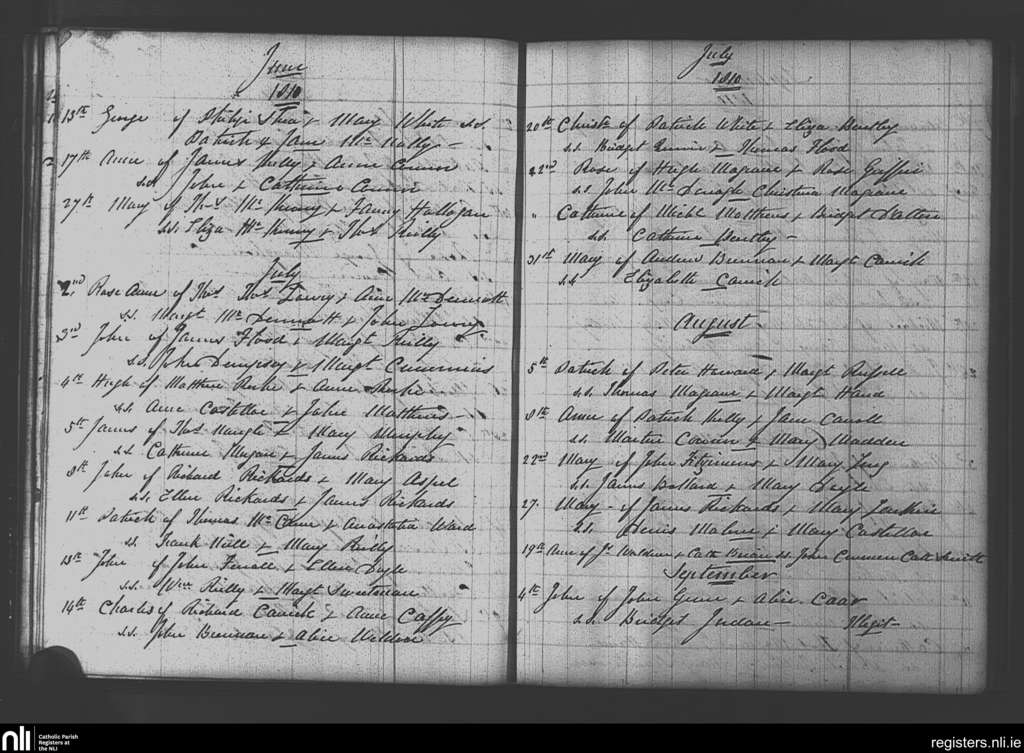 June
1810
13th George of Philip Shea & Mary White s.s.
Patrick & Jane Mc Nally -
17th Anne of James Kelly & Anne Connor
s.s. John & Catherine Connor
27th Mary of Thos Mc Kenny & Fanny Halligan
s.s. Eliza Mc Kenny & Thos Reilly
July
2nd Rose Anne of Thos Lowry & Anne McDermott
s.s. Margt McDermott & John Lowry
3rd John of James Flood & Margt Reilly
s.s. John Dempsey & Margt Cummins
4th Hugh of Matthew & Anne
s.s. Anne Costelloe & John Matthews -
5th James of Thos Naugle & Mary Murphy
s.s. Catherine & James Rickards
8th John of Richard Rickards & Mary Aspel
s.s. Ellen Rickards & James Rickards
11th Patrick of Thomas & Anastatia Ward
ss Frank & Mary Reilly
13th John of John Farrell & Ellen Doyle
s.s. Wm Reilly & Margt Sweetman
14th Charles of Richard Carrick & Anne Caffry
s.s. John Brennan & Alice Weldon
July
1810
20th Christn of Patrick White & Eliza Bentley
s.s. Bridget & Thomas Flood
22nd Rose of Hugh Magrane & Rose Gaffni
s.s. John Christina Magrane
" Catherine of Michl Matthews & Bridget Dalton
s.s. Catherine Bentley -
31st Mary of Andrew Brennan & Margt Carrick
s.s. Elizabeth Carrick
August
5th Patrick of Peter Howard & Margt Russell
s.s. Thomas Magrane & Margt Hand
8th Anne of Patrick Kelly & Jane Carroll
s.s. Martin & Mary Madden
22nd Mary of John Fitzsimons & Mary
s.s. James Bollard & Mary Doyle
27. Mary - of James Rickards & Mary
s.s. Denis Malone & Mary Costelloe
19th Anne of Js Waldron & Cath ss. John Connern Cath Smith
September
4th John of John & Alice Carr
s.s. Bridget Jordan - Illegit -
nli
Catholic Parish
Registers at
the NLI
registers.nli.ie